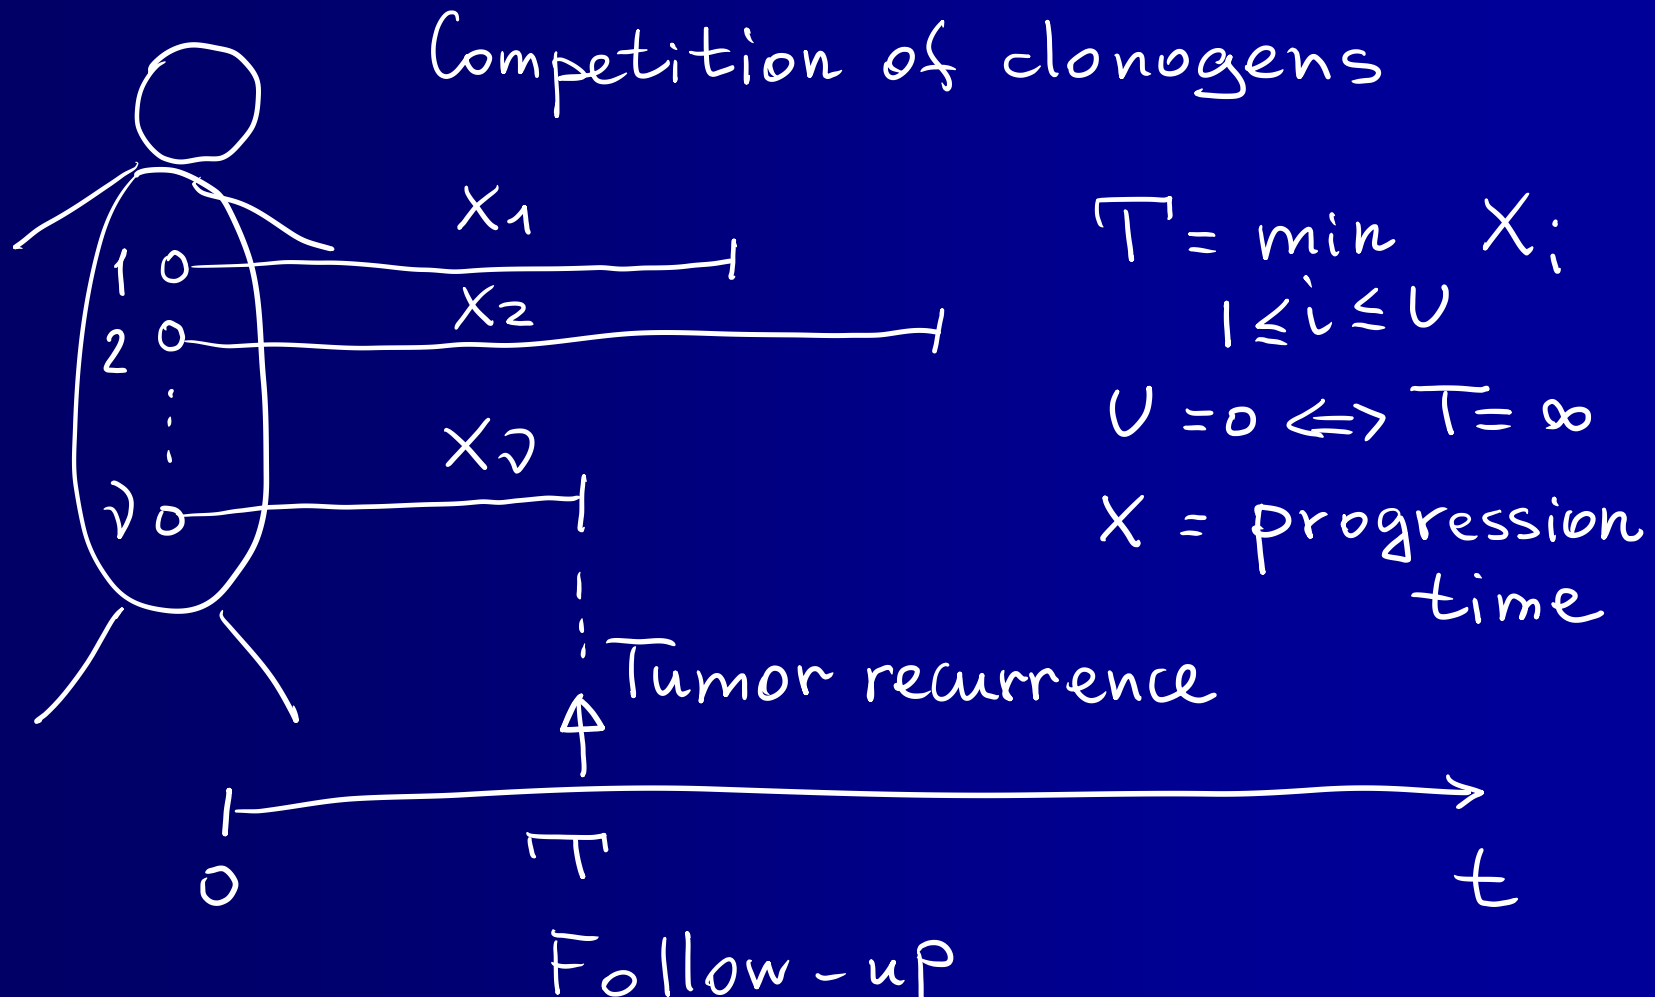 Competition of clonogens
X1
T = min Xi
1 ≤ i ≤ υ
1
X2
2
υ = 0 ⟺ T = ∞
Xν
ν
X = progression
time
Tumor recurrence
0
T
t
Follow-up